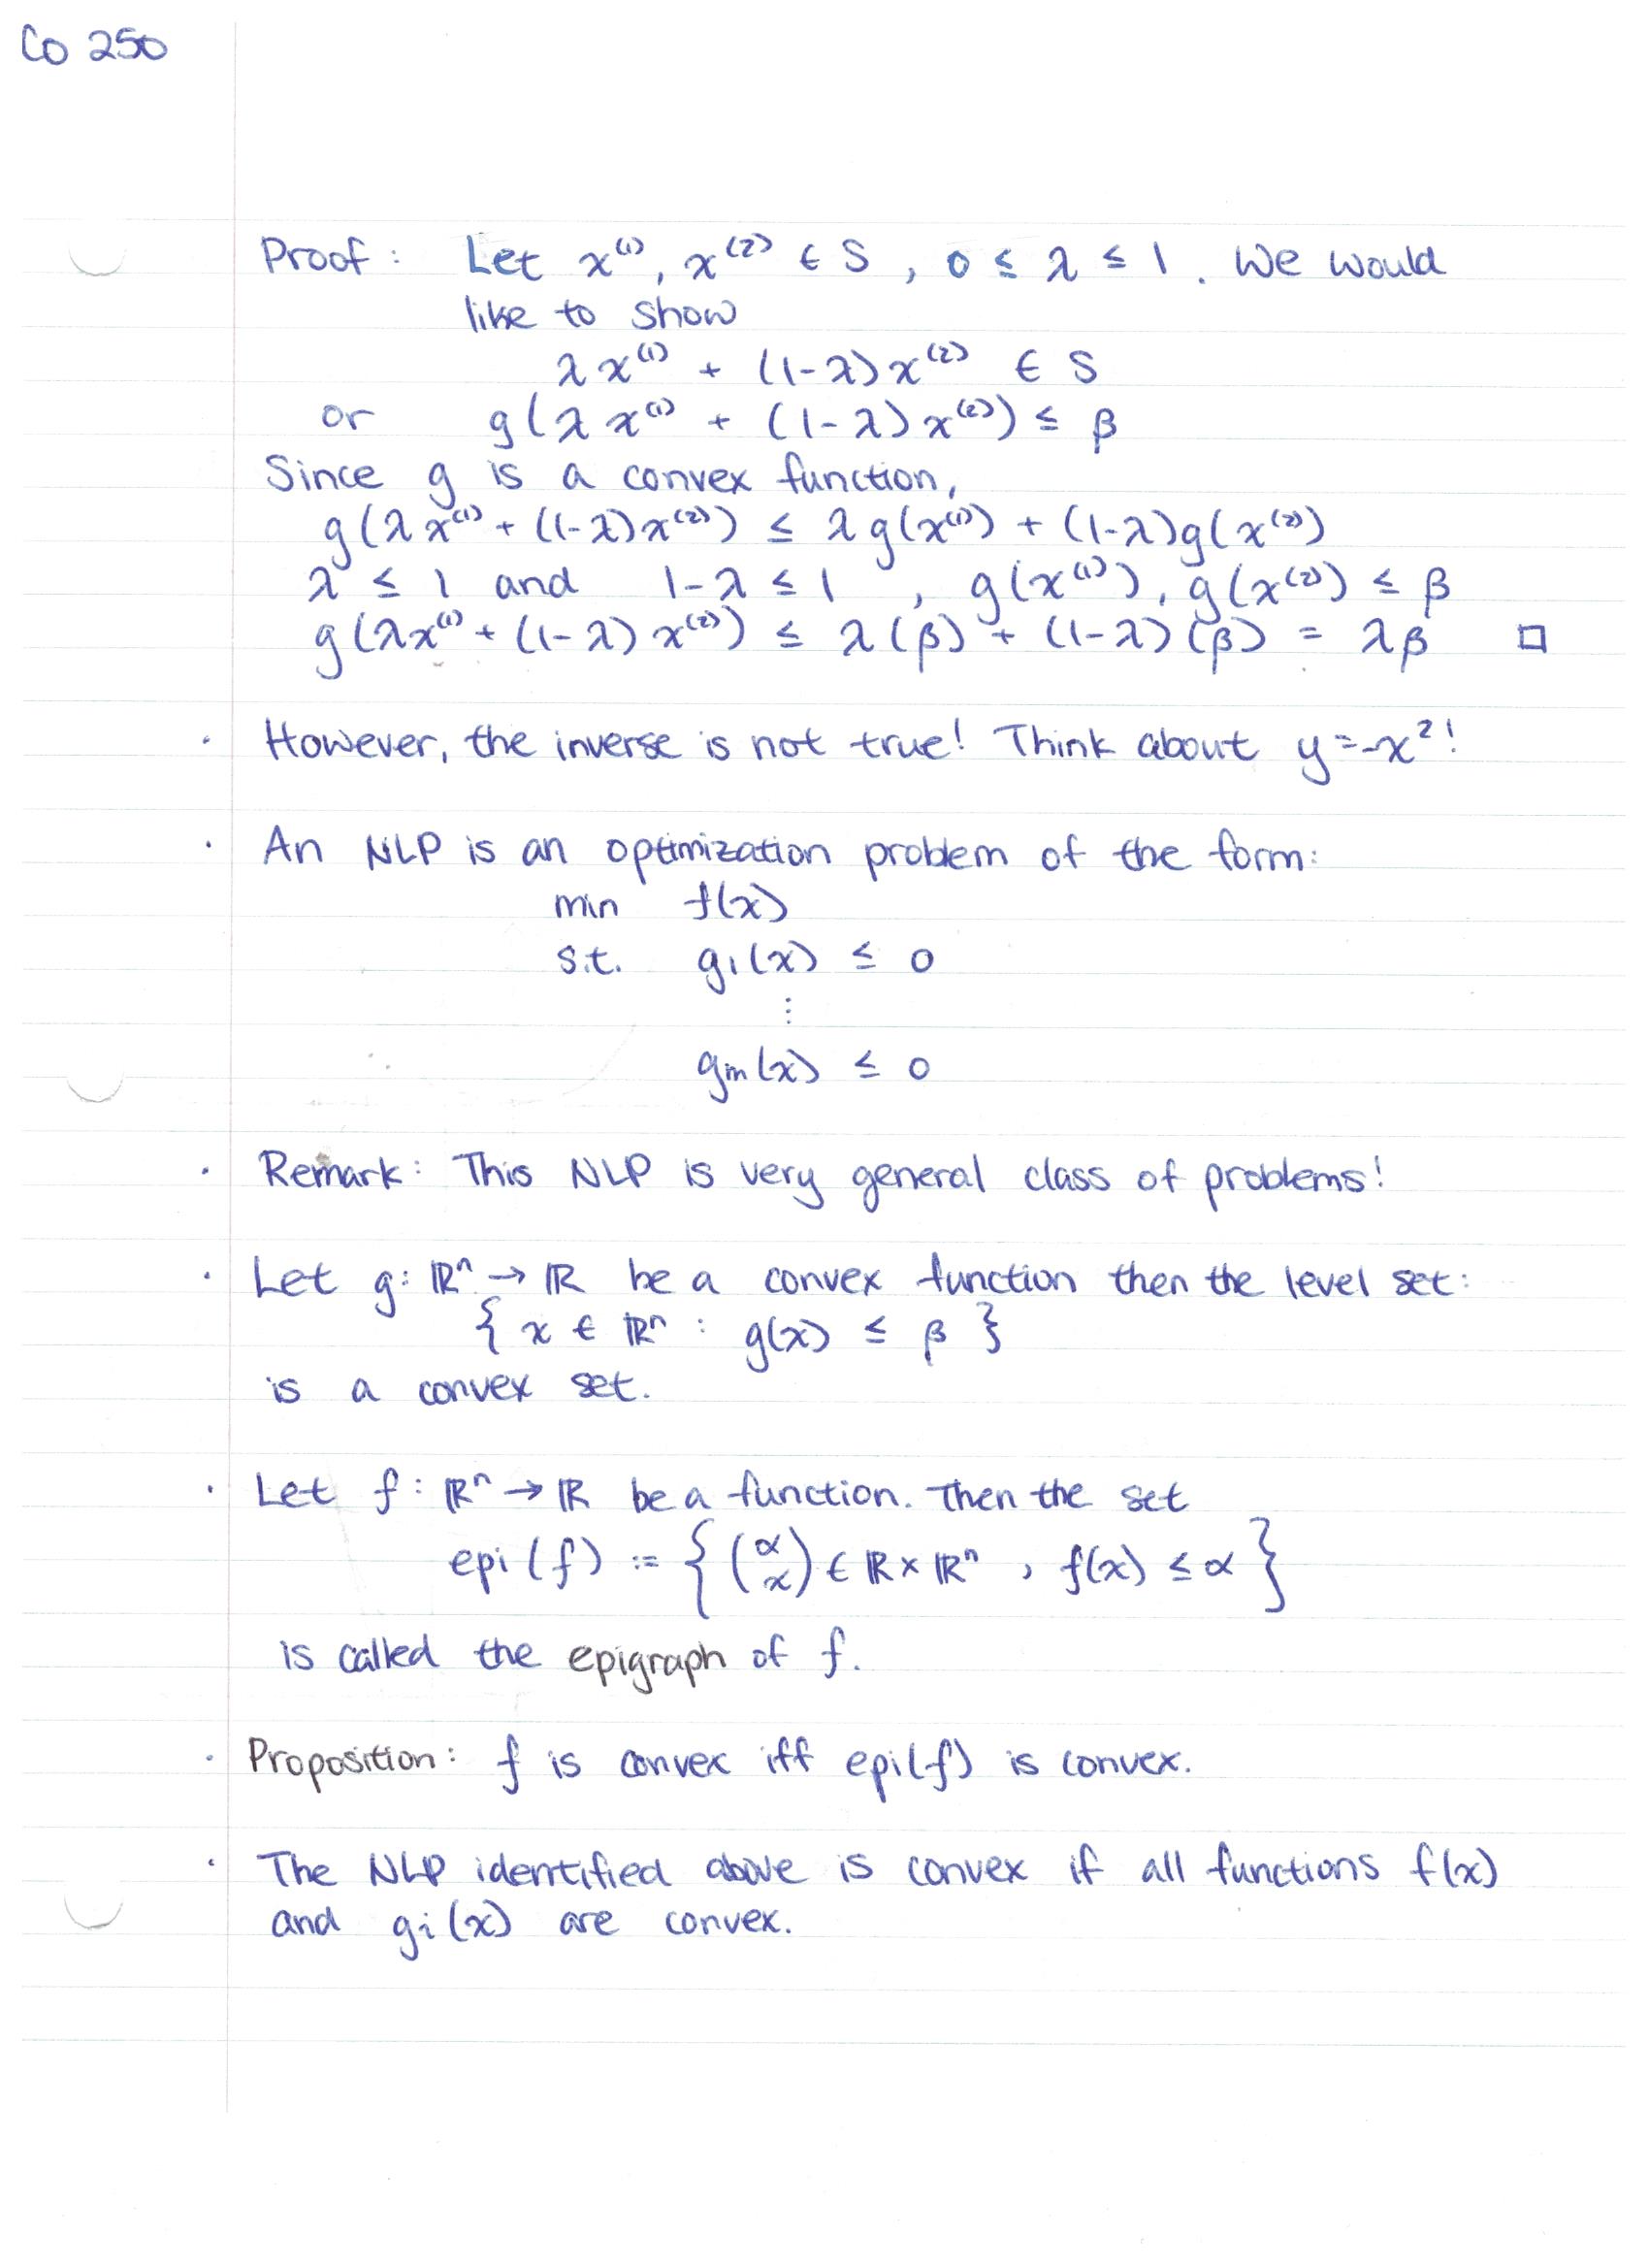 CO 250
Proof: Let x⁽¹⁾, x⁽²⁾ ∈ S, 0 ≤ λ ≤ 1. We would
like to show
λx⁽¹⁾ + (1-λ)x⁽²⁾ ∈ S
or g(λx⁽¹⁾ + (1-λ)x⁽²⁾) ≤ β
Since g is a convex function,
g(λx⁽¹⁾ + (1-λ)x⁽²⁾) ≤ λg(x⁽¹⁾) + (1-λ)g(x⁽²⁾)
λ ≤ 1 and 1-λ ≤ 1, g(x⁽¹⁾), g(x⁽²⁾) ≤ β
g(λx⁽¹⁾ + (1-λ)x⁽²⁾) ≤ λ(β) + (1-λ)(β) = λβ □
· However, the inverse is not true! Think about y=-x²!
· An NLP is an optimization problem of the form:
min f(x)
s.t. g₁(x) ≤ 0
⋮
gₘ(x) ≤ 0
· Remark: This NLP is very general class of problems!
· Let g: ℝⁿ → ℝ be a convex function then the level set:
{ x ∈ ℝⁿ : g(x) ≤ β }
is a convex set.
· Let f: ℝⁿ → ℝ be a function. Then the set
epi(f) := { (α x) ∈ ℝ × ℝⁿ, f(x) ≤ α }
is called the epigraph of f.
· Proposition: f is convex iff epi(f) is convex.
· The NLP identified above is convex if all functions f(x)
and gᵢ(x) are convex.